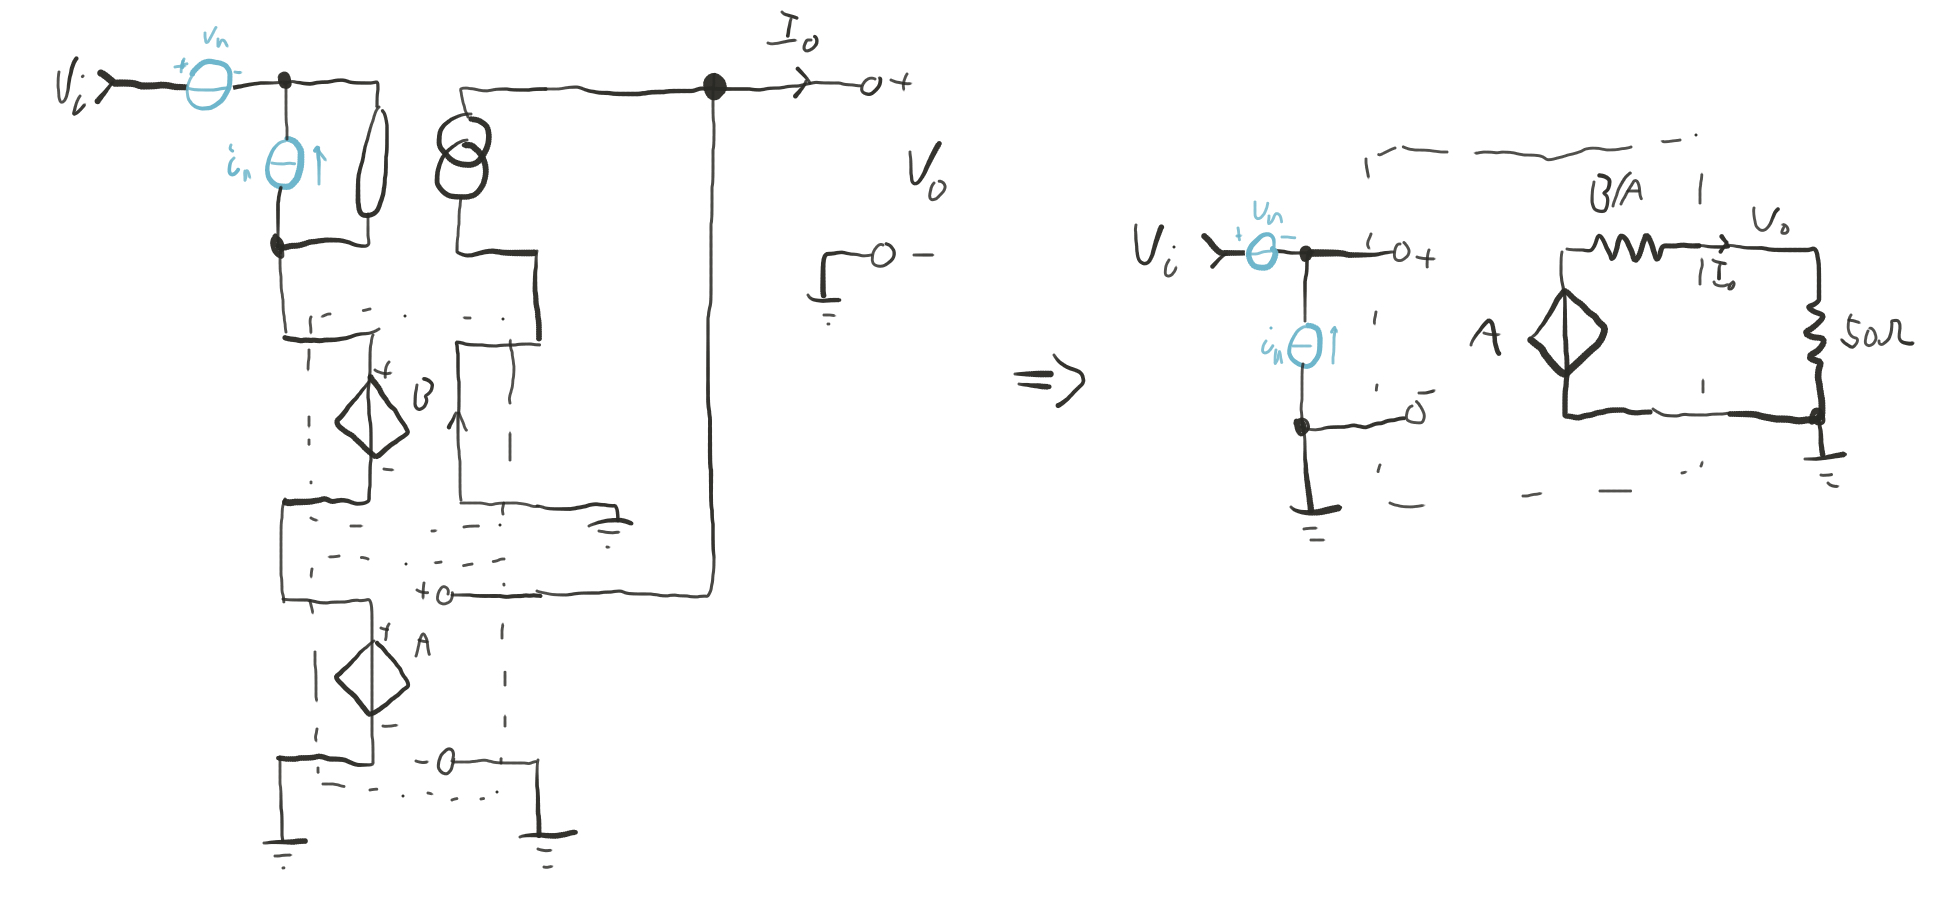 Vi
+ vn -
in ↑
Io
+
Vo
-
+ B
-
+
+ A
-
-
⇒
Vi
+ vn -
in ↑
+
-
A
B/A
Io
Vo
50Ω